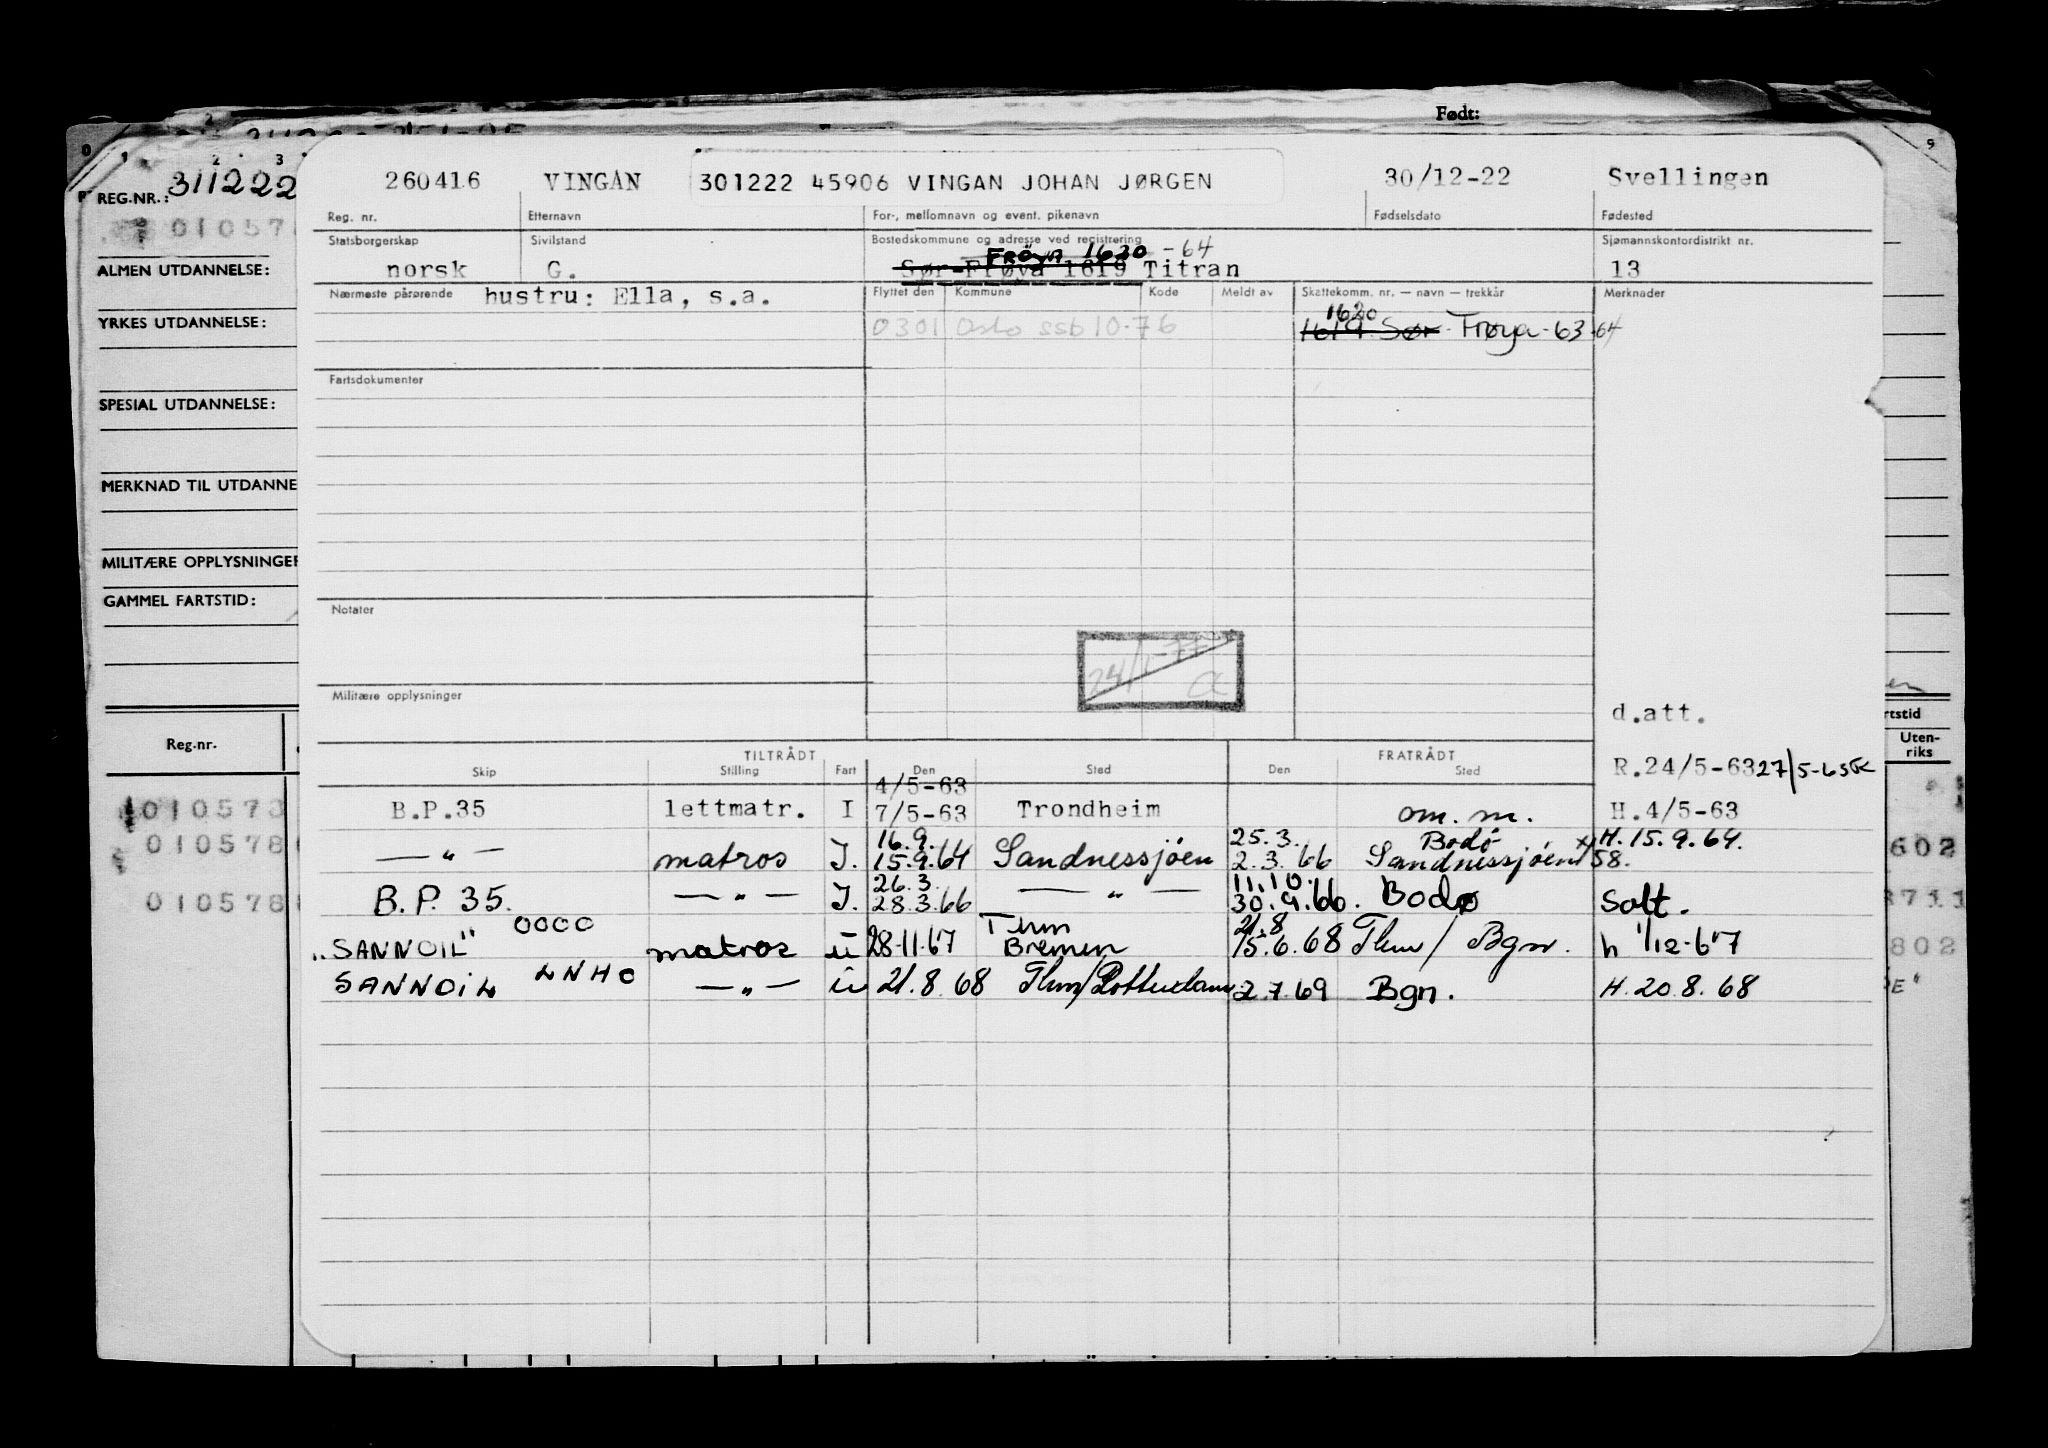 Født:
0 1 2 3 9
REG.NR.: 311222
260416 VINGAN 301222 45906 VINGAN JOHAN JØRGEN 30/12-22 Svellingen
Reg. nr. Etternavn For-, mellomnavn og event. pikenavn Fødselsdato Fødested
010578
Statsborgerskap Sivilstand Bostedskommune og adresse ved registrering Sjømannskontordistrikt nr.
FRÖYA 1620 -64
ALMEN UTDANNELSE: norsk G. Sør-Frøya 1619 Titran 13
Nærmeste pårørende hustru: Ella, s.a. Flyttet den Kommune Kode Meldt av Skattekomm. nr. — navn — trekkår Merknader
1620
YRKES UTDANNELSE: 0301 Oslo ssb 10-76 1619 Sør- Frøya-63-64
Fartsdokumenter
SPESIAL UTDANNELSE:
MERKNAD TIL UTDANNE
MILITÆRE OPPLYSNINGER
GAMMEL FARTSTID:
Notater
24/1-77
Militære opplysninger
d.att.
rtstid
Reg-nr. TILTRÅDT FRATRÅDT Uten-
riks
Skip Stilling Fart Den Sted Den Sted R.24/5-63 27/5-63
4/5-63
010573 B.P.35 lettmatr. I 7/5-63 Trondheim om. m. H. 4/5-63
16.9. 25.3. Bodö H. 15.9.64.
010578 — " — matros I. 15.9.64 Sandnessjöen 2.3.66 Sandnessjöen 58. 602
26.3. 11.10.
010578 B.P. 35. — " — I. 28.3.66 — " — 30.9.66. Bodø Salt. 711
0000 Thm 21.8
"SANNOIL" matros u 28-11-67 Bremen 15.6.68 Thm / Bgn. h 1/12-67 802
SANNOIL LNHC — " — u 21.8.68 Thm/Rotterdam 2.7.69 Bgn. H. 20.8.68